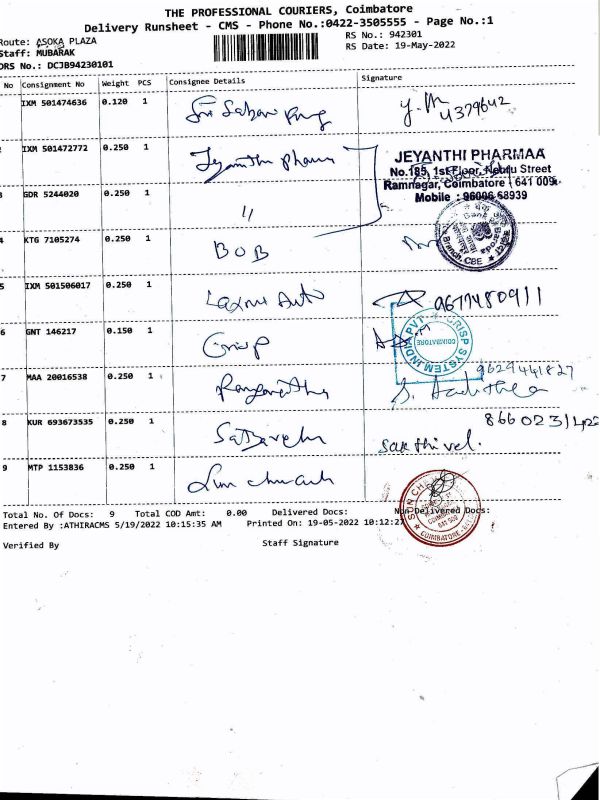 THE PROFESSIONAL COURIERS, Coimbatore
Delivery Runsheet - CMS - Phone No.:0422-3505555 - Page No.:1
Route: ASOKA PLAZA
RS No.: 942301
Staff: MUBARAK
RS Date: 19-May-2022
DRS No.: DCJB94230101
No Consignment No Weight PCS Consignee Details Signature
IXM 501474636 0.120 1 Sri
4379642
2 IXM 501472772 0.250 1 Jeyanthi pharma
JEYANTHI PHARMAA
No.185, 1st Floor, Nehru Street
Ramnagar, Coimbatore 641 009.
Mobile : 96006 68939
3 GDR 5244020 0.250 1 "
4 KTG 7105274 0.250 1 BOB
Branch, CBE
5 IXM 501506017 0.250 1 Laxmi Auto 9677480911
6 GNT 146217 0.150 1 Crisp
CRISP SYSTEM INDIA PVT
COIMBATORE
7 MAA 20016538 0.250 1
9629441827
8 KUR 693673535 0.250 1
866023
sakthivel.
9 MTP 1153836 0.250 1
COIMBATORE
Total No. Of Docs: 9 Total COD Amt: 0.00 Delivered Docs: Non Delivered Docs:
Entered By :ATHIRACMS 5/19/2022 10:15:35 AM Printed On: 19-05-2022 10:12:27
Verified By Staff Signature